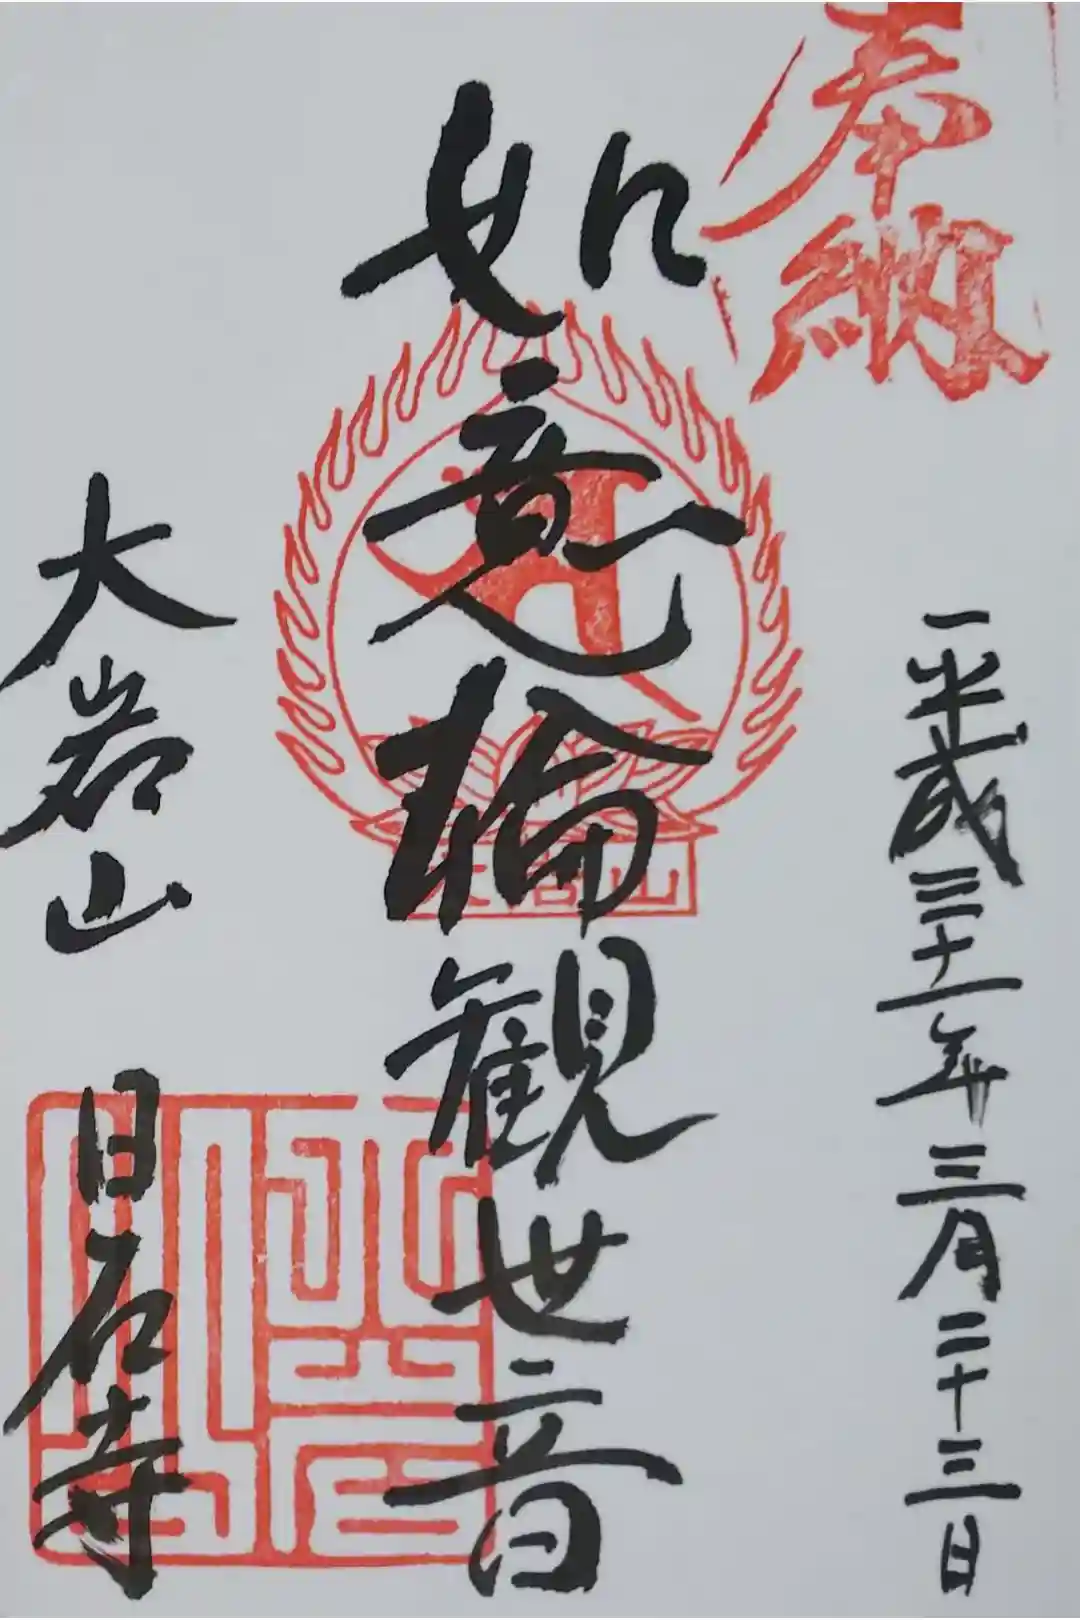 奉納
平成三十一年三月二十三日
如意輪観世音
大岩山
大岩山 日石寺